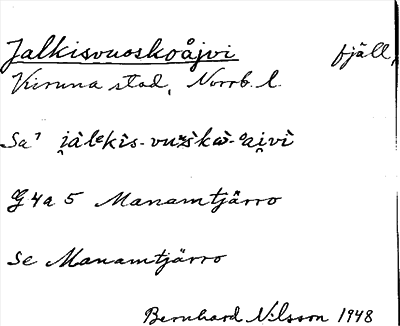 Jalkisvuoskoåjvi fjäll,
Kiruna stad, Norrb. l.
Sa¹
G 4a 5 Manamtjärro
Se Manamtjärro
Bernhard Nilsson 1948